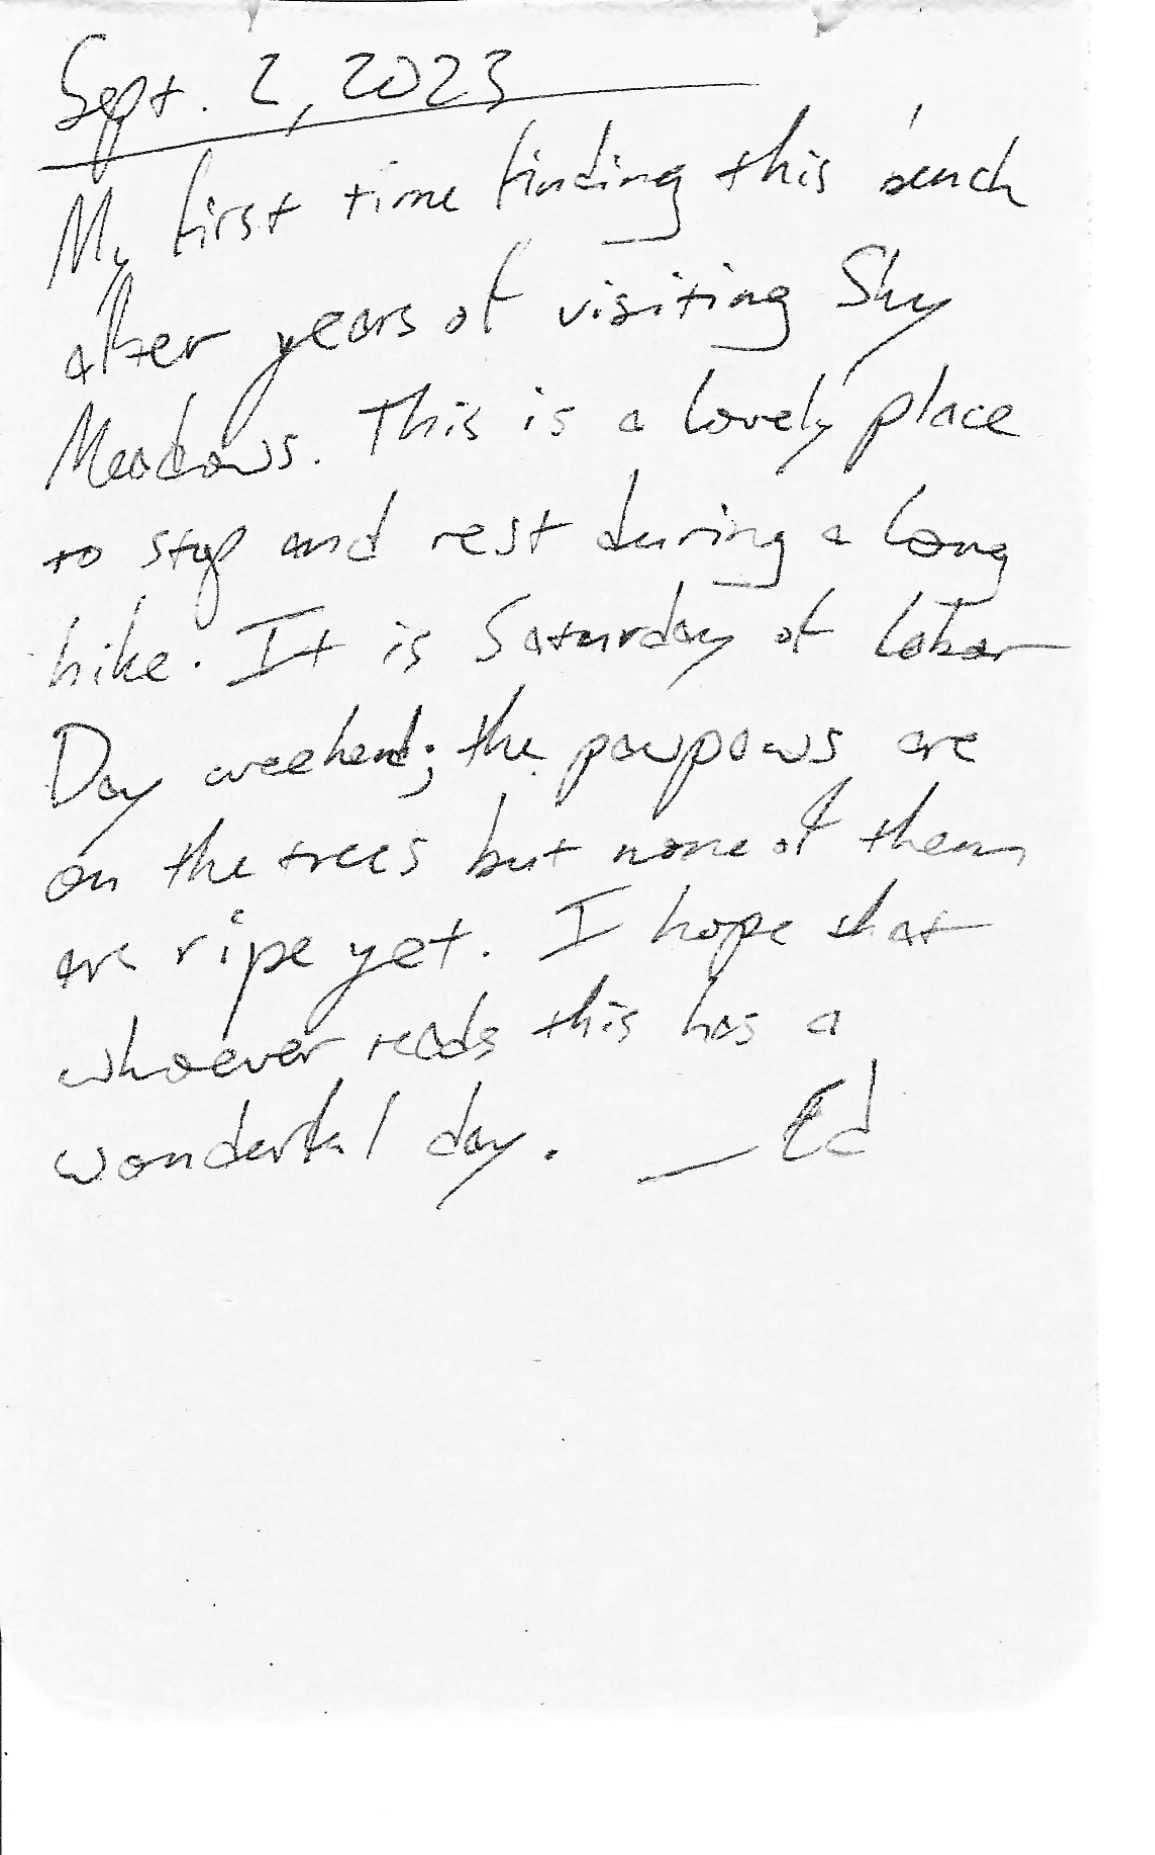 Sept. 2, 2023
My first time finding this bench
after years of visiting Sky
Meadows. This is a lovely place
to stop and rest during a long
hike. It is Saturday of Labor
Day weekend; the pawpaws are
on the trees but none of them
are ripe yet. I hope that
whoever reads this has a
wonderful day. — Ed